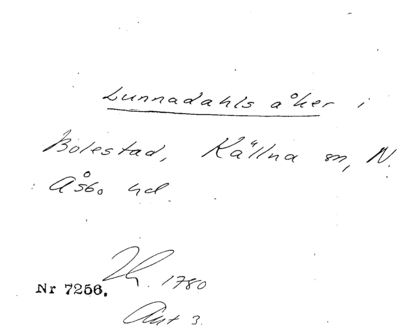 Lunnadahls åker i
Bolestad, Källna sn, N.
Åsbo hd.
Lh. 1780
Nr 7256.
Akt 3.